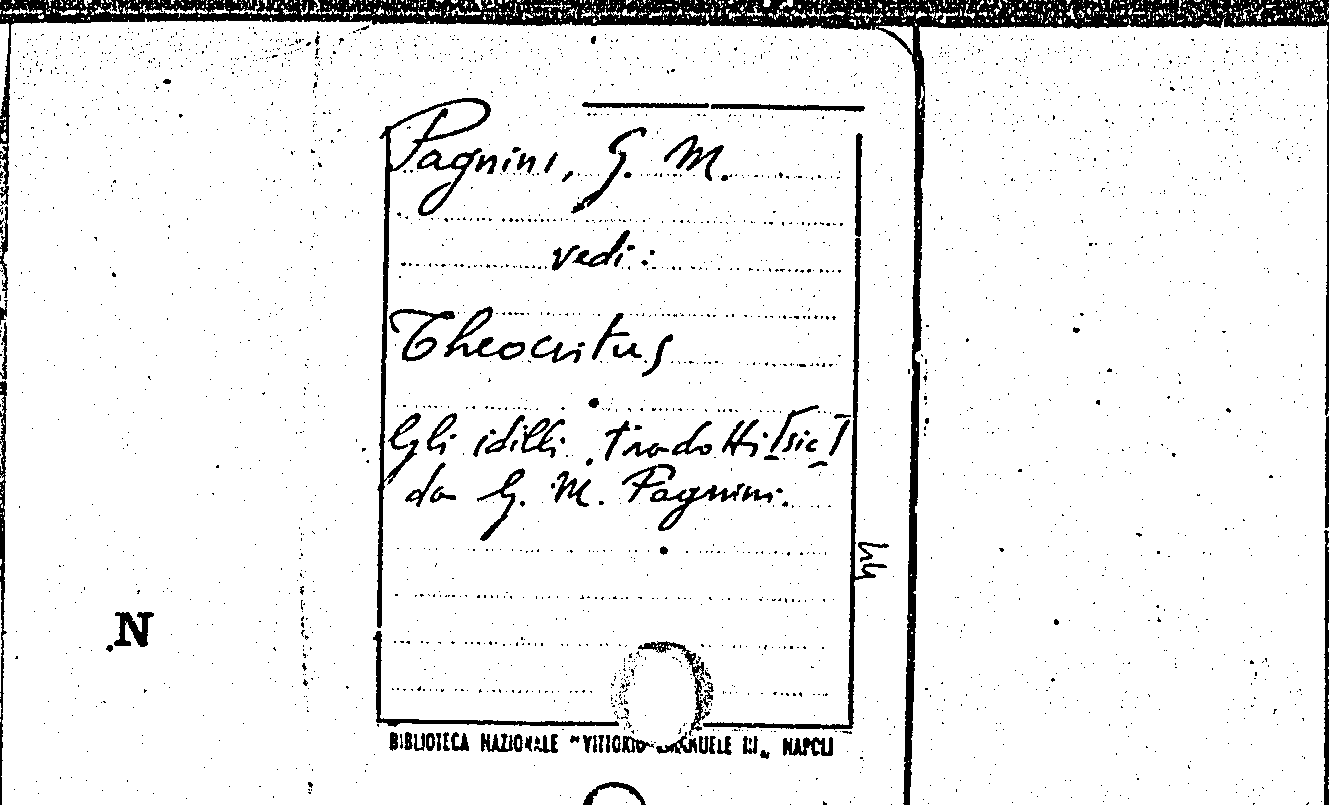 Pagnini, G. M.
vedi:
Theocritus
Gli idilli tradotti [sic]
da G. M. Pagnini.
N
BIBLIOTECA NAZIONALE "VITTORIO EMANUELE III„ NAPOLI